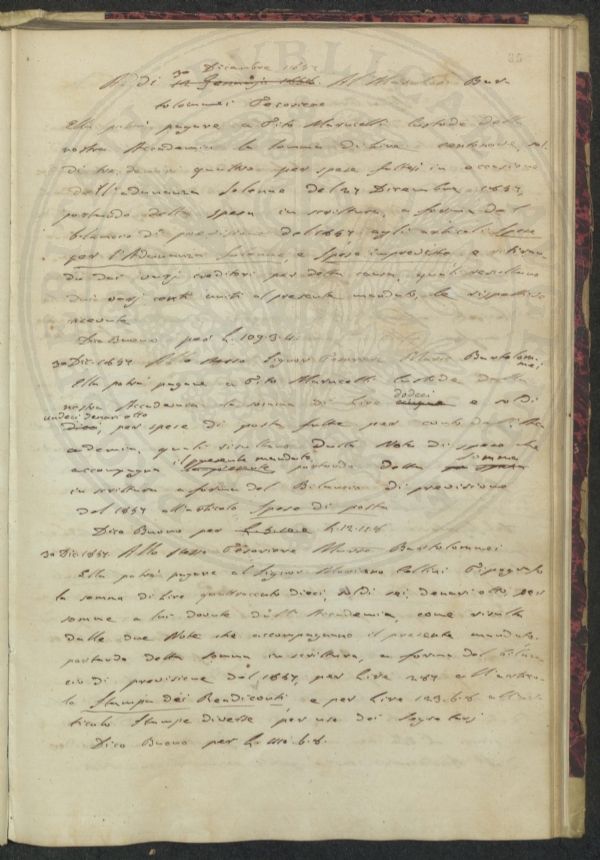 85
30 Dicembre 1857
A dì 12 Gennajo 1858. Al Marchese Bar
tolommei Tesoriere
Ella potrà pagare a Tito Marucelli Custode della
nostra Accademia la somma di Lire centonove, sol
di tre, denari quattro per spese fattesi in occasione
dell'adunanza solenne del 27 Dicembre 1857,
portando detta spesa in scrittura, a forma del
bilancio di previsione del 1857 agli articoli Spese
per l'Adunanza Solenne, e Spese impreviste, e ritiran
do dai varj creditori per detta causa, quali resultano
dai varj conti uniti al presente mandato, le rispettive
ricevute
Dico Buono per L. 109.3.4.
30 Dic. 1857. Allo stesso Signor Tesoriere Bartolom
mei
Ella potrà pagare a Tito Marucelli Custode della
dodeci
nostra Accademia la somma di Lire cinque e soldi
undeci denari otto
dieci, per spese di posta fatte per conto dell'Ac
cademia, quali resultano dalla Nota di spese che
il presente mandato somma
accompagna portando detta
in scrittura a forma del Bilancio di previsione
del 1857 all'articolo Spese di posta
Dico Buono per L. 12.11.8
30 Dic. 1857. Allo stesso Tesoriere Bartolommei
Ella potrà pagare al Signor Mariano Cellini Tipografo
la somma di Lire quattrocento dieci, soldi sei, denari otto, per
somme a lui dovute dall'Accademia, come resulta
dalle due Note che accompagnano il presente mandato.
portando detta somma in scrittura, a forma del bilan
cio di previsione del 1857, per Lire 287 all'artico
lo Stampa dei Rendiconti, e per Lire 123.6.8 all'ar
ticolo Stampe diverse per uso dei Segretarj
Dico Buono per L. 410.6.8.